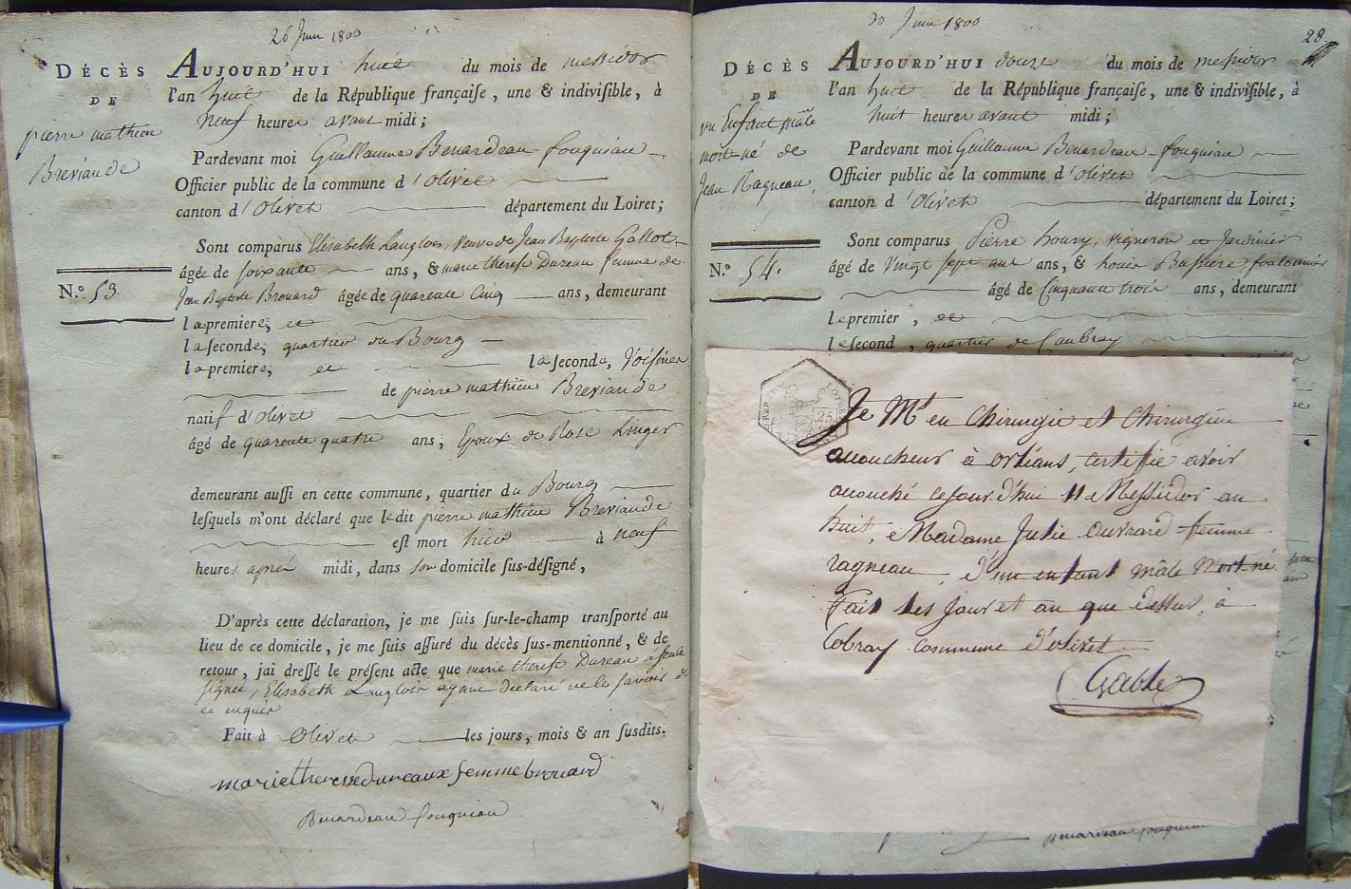 26 Juin 1800
DÉCÈS
DE
pierre mathieu
Breviande
N.º 53
AUJOURD'HUI huit du mois de messidor
l'an huit de la République françaiſe, une & indiviſible, à
neuf heures avant midi;
Pardevant moi Guillaume Benardeau fouquiau
Officier public de la commune d'olivet
canton d'olivet département du Loiret;
Sont comparus Elisabeth Langlois, veuve de Jean Baptiste Gallot
âgée de soixante ans, & marie therese Dureau femme de
Jean Baptiste Brouard âgée de quarente Cinq ans, demeurant
la premiere, et
la ſeconde, quartier du Bourg
la premiere, et la ſeconde, Voisines
de pierre mathieu Breviande
natif d'olivet
âgé de quarente quatre ans, Epoux de Rose Linger
demeurant auſſi en cette commune, quartier du Bourg
leſquels m'ont déclaré que ledit pierre mathieu Breviande
eſt mort hier à neuf
heures après midi, dans son domicile ſus-déſigné,
D'après cette déclaration, je me ſuis ſur-le-champ tranſporté au
lieu de ce domicile, je me ſuis aſſuré du décès ſus-mentionné, & de
retour, jai dreſſé le préſent acte que marie therese Dureau a seule
signée, Elisabeth Langlois ayant declaré ne le savoir de
ce enquis
Fait à Olivet les jours, mois & an ſusdits.
marietheresedureaux femmebrouard
Benardeau fouquiau
30 Juin 1800
28
DÉCÈS
DE
un Enfant mâle
mort-né de
Jean Ragneau,
N.º 54.
AUJOURD'HUI douze du mois de messidor
l'an huit de la République françaiſe, une & indiviſible, à
huit heures avant midi;
Pardevant moi Guillaume Benardeau fouquiau
Officier public de la commune d'olivet
canton d'Olivet département du Loiret;
Sont comparus Pierre houry, vigneron et Jardinier
âgé de Vingt sept ans ans, & Louis Bussiere,
âgé de Cinquante trois ans, demeurant
le premier, et
le ſecond, quartier de Caubray
Je M.e en Chirurgie et Chirurgien
accoucheur à orléans, certifie avoir
accouché cejourd'hui 11 Messidor an
huit, Madame Julie ouvrard femme
ragneau, d'un enfant mâle mort-né
Fait les jour et an que dessus, à
Cobray Commune d'olivet
Gable
Benardeau fouquiau